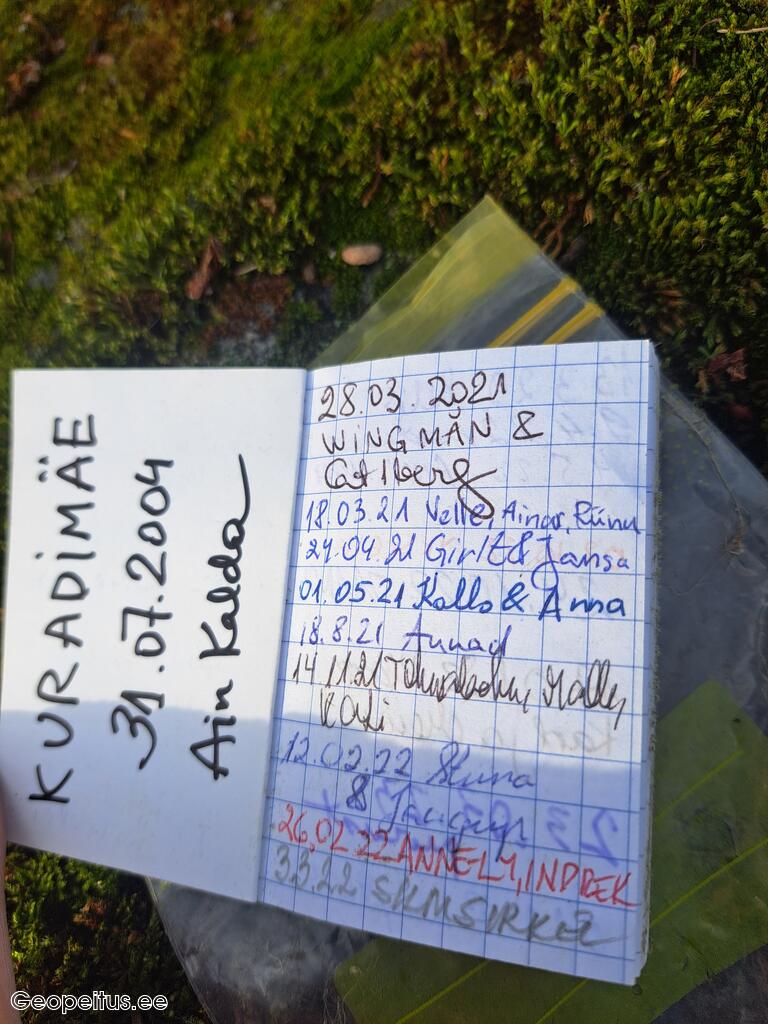 KURADIMÄE
31.07.2004
Ain Kalda
28.03.2021
WINGMĂN &
Carlberg
18.03.21 Velle, Ainar, Rünu
24.04.21 Girlt & Jansa
01.05.21 Kallo & Anna
18.8.21 Annad
14.11.21
Kati
12.02.22
&
26.02.22 ANNELY, INDREK
3.3.22 SILMSIRKEL
Geopeitus.ee